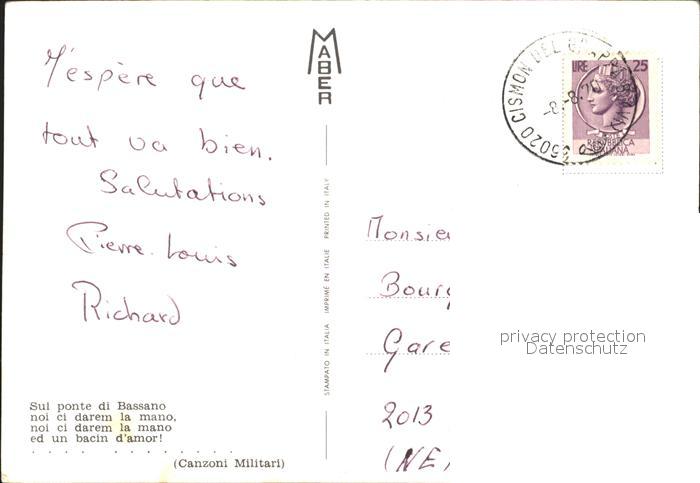 J'espère que
tout va bien.
Salutations
Pierre-Louis
Richard
Sul ponte di Bassano
noi ci darem la mano,
noi ci darem la mano
ed un bacin d'amor!
(Canzoni Militari)
MABER
STAMPATO IN ITALIA IMPRIMÉ EN ITALIE PRINTED IN ITALY
36020 CISMON DEL GRAPPA
-8.-8.70
LIRE 25
REPVBBLICA
ITALIANA
Monsie
Bourg
Gare
2013
(NE,
privacy protection
Datenschutz